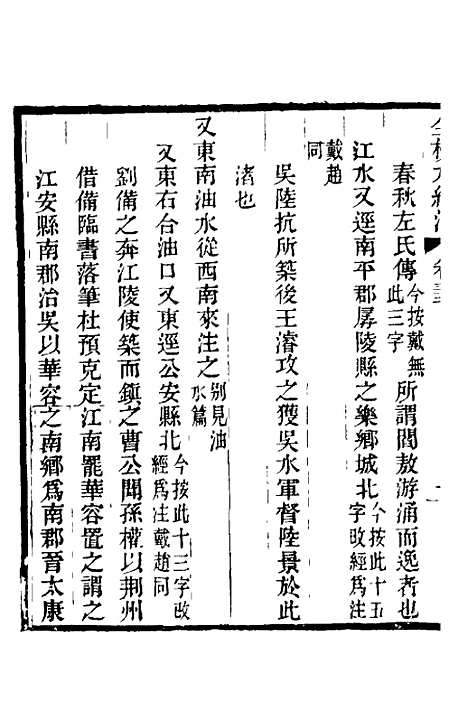 全校水經注 卷三
春秋左氏傳今按戴無此三字所謂閻敖游涌而逸者也
江水又逕南平郡孱陵縣之樂鄉城北今按此十五字改經爲注
戴趙同
吳陸抗所築後王濬攻之獲吳水軍督陸景於此
渚也
又東南油水從西南來注之別見油水篇
又東右合油口又東逕公安縣北今按此十三字改經爲注戴趙同
劉備之奔江陵使築而鎮之曹公聞孫權以荆州
借備臨書落筆杜預克定江南罷華容置之謂之
江安縣南郡治吳以華容之南鄉爲南郡晉太康